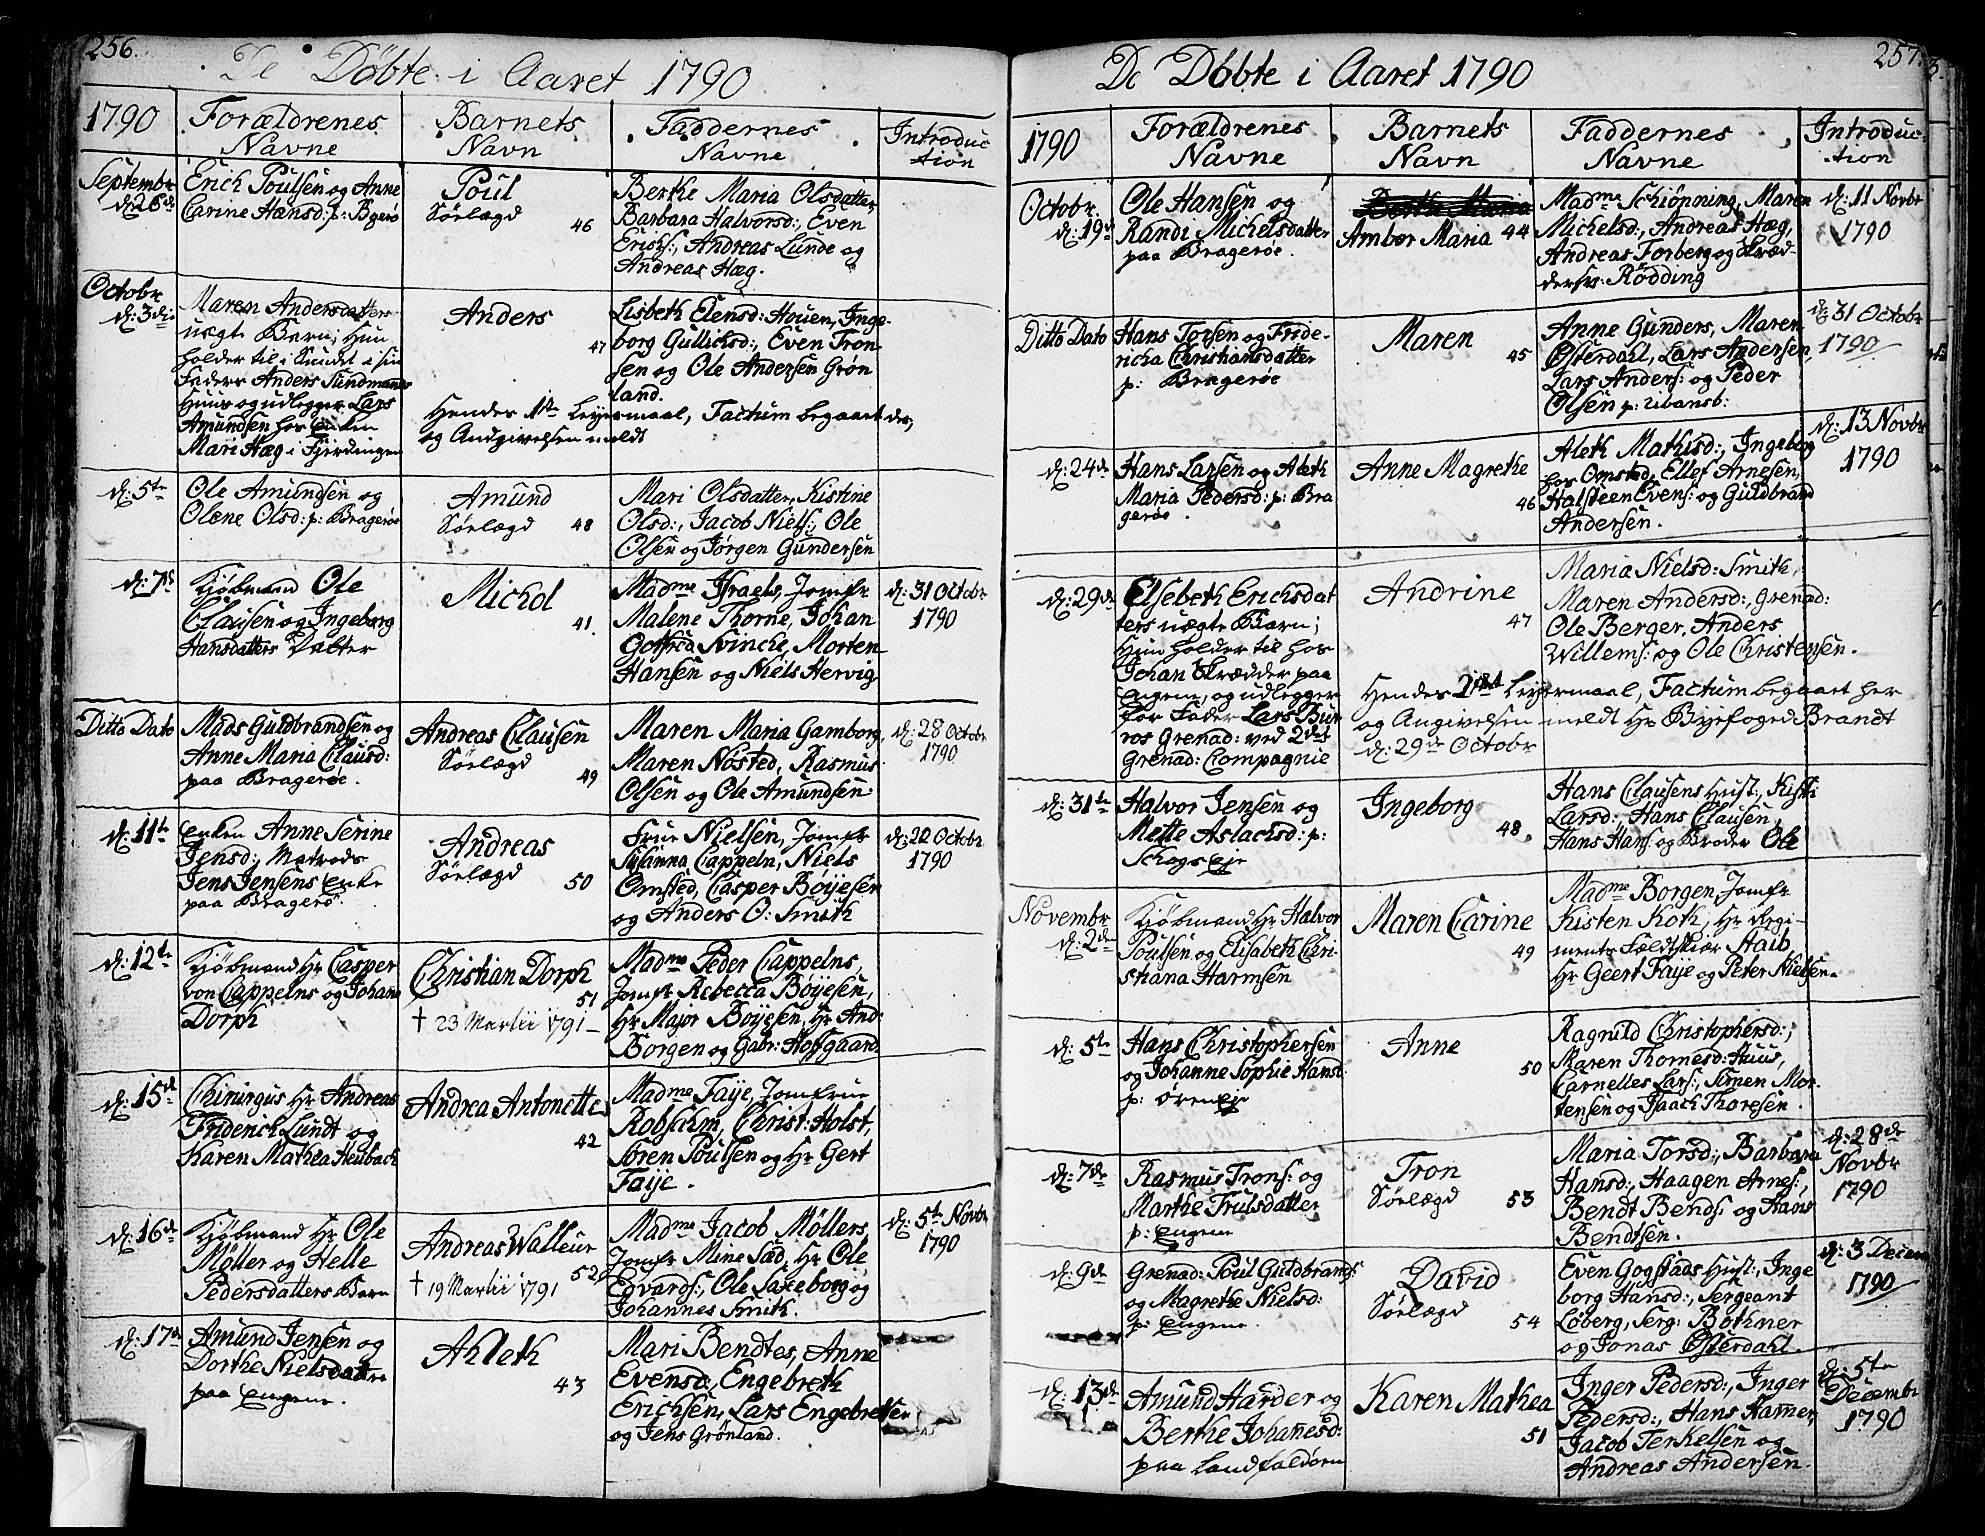 256.
De Døbte i Aaret 1790
1790
Forældrenes
Navne
Barnets
Navn
Faddernes
Navne
Introduc
tion
Septembr
d: 26de
Erich Poulsen og Anne
Carine Hansd: p: Bgerø
Poul
Sørlægd
46
Berthe Maria Olsdatter,
Barbara Halvorsd:, Even
Erichs:, Andreas Lunde og
Andreas Hæg.
Octobr
d: 3die
Maren Andersdatters
uægte Barn; Hun
holder til i Sundet i sin
Faders Anders Sundmands
Huus og udlegger Lars
Amundsen hos Enken
Mari Hæg i Fjerdingen
Anders
47
Lisbeth Elensd: Houen, Inge-
borg Gullichsd:, Even Tron
sen og Ole Andersen Grøn
land.
Hendes 1te Leyermaal, Factum begaaet der,
og Andgivelsen meldt
d: 5te
Ole Amundsen og
Olene Olsd: p: Bragerøe
Amund
Sørlægd
48
Mari Olsdatter, Kistine
Olsd:, Jacob Niels:, Ole
Olsen og Jørgen Gundersen
d: 7de
Kjøbmand Ole
Clausen og Ingeborg
Hansdatters Datter
Michol
41.
Madme Israels, Jomfr
Malene Thorne, Johan
Gotfred Svincke, Morten
Hansen og Niels Hervig
d: 31 Octobr
1790
Ditto Dato
Mads Guldbrandsen og
Anne Maria Clausd:
paa Bragerøe.
Andreas Clausen
Sørlægd
49
Maren Maria Gamborg,
Maren Nøsted, Rasmus
Olsen og Ole Amundsen
d: 28 Octobr
1790
d: 11te
Enken Anne Serine
Jensd:, Matrods
Jens Jensens Enke
paa Bragerø.
Andreas
Sørlægd
50
Frue Nielsen, Jomfr
Susanna Cappeln, Niels
Omsted, Casper Bøyesen
og Anders O: Smith
d: 22 Octobr
1790
d: 12te
Kjøbmand Hr Casper
von Cappelns og Johana
Dorph
Christian Dorph
51
† 23 Martii 1791
Madme Peder Cappelns,
Jomfr Rebecca Bøyesen,
Hr Major Bøyesen, Hr And:
Borgen og Gabr: Hofgaard
d: 15de
Chirurgus Hr Andreas
Friderich Lundt og
Karen Mathea Heubach
Andrea Antonette
42
Madme Faye, Jomfrue
Robsahm, Christ: Holst,
Søren Poulsen og Hr Gert
Faye.
d: 16de
Kjøbmand Hr Ole
Møller og Helle
Pedersdatters Barn
Andreas Walleur
52
† 19 Martii 1791
Madme Jacob Møllers,
Jomfr Mine Sæd, Hr Ole
Edvards:, Ole Saxeborg og
Johannes Smith.
d: 5te Novbr
1790
d: 17de
Amund Jensen og
Dorthe Nielsdatter
paa Engene.
Ahleth
43
Mari Bendtes, Anne
Evensd, Engebreth
Erichsen, Lars Engebretsen
og Jens Grønland.
257.
De Døbte i Aaret 1790
1790
Forældrenes
Navne
Barnets
Navn
Faddernes
Navne
Introduc
tion
Octobr
d: 19de
Ole Hansen og
Randi Michelsdatter
paa Bragerøe.
Berthe Maria
Amber Maria
44
Madme Schiønning, Maren
Michelsd:, Andreas Hæg,
Andreas Forberg og Skræd-
dersv: Rødding
d: 11 Novbr
1790
Ditto Dato
Hans Torsen og Fride-
richa Christiansdatter
p: Bragerøe
Maren
45
Anne Gunders, Maren
Østerdahl, Lars Andersen,
Lars Anders: og Peder
Olsen p: Ulvansb:
d: 31 Octobr
1790
d: 24de
Hans Larsen og Aleth
Maria Pedersd: p: Bra
gerøe.
Anne Magrethe
46
Aleth Mathisd:, Ingeborg
hos Omsted, Ellef Arnesen,
Halsteen Evens: og Guldbrand
Andersen.
d: 13 Novbr
1790
d: 29de
Elsebeth Erichsdat
ters uægte Barn;
Hun holder til hos
Johan Skrædder paa
Engene, og udlegger
for Fader Lars Bur
ros Grenad: ved 2det
Grenad: Compagnie
Andrine
47
Maria Nielsd: Smith,
Maren Andersd:, Grenad:
Ole Berger, Anders
Willems: og Ole Christensen.
Hendes 2det Leyermaal, Factum begaaet her
og Angivelsen meldt Hr Byefoged Brandt
d: 29de Octobr
d: 31te
Halvor Jensen og
Mette Aslachsd: p:
Schogs Eje
Ingeborg
48.
Hans Clausens Hust:, Kisti
Larsd:, Hans Clausen,
Hans Hans: og Broder Ole
Novembr
d: 2den
Kjøbmand Hr Halvor
Poulsen og Elisabeth Chri-
stiana Harmsen
Maren Carine
49
Madme Borgen, Jomfr
Kisten Koth, Hr Regi-
ments Feldtskiær Haib,
Hr Geert Faye og Peter Nielsen.
d: 5te
Hans Christophersen
og Johanne Sophie Hansd
p: Øren Eje
Anne
50
Ragnild Christophersd:,
Maren Thomesd: Huus,
Carnelles Lars:, Simen Mor
tensen og Isaach Thoresen.
d: 7de
Rasmus Trons: og
Marthe Trulsdatter
p: Engene
Tron
Sørlægd
53
Maria Torsd:, Barbara
Hansd:, Haagen Arnes:,
Bendt Bends: og Hans
Bendtsen.
d: 28de
Novbr
1790
d: 9de
Grenad: Poul Guldbrands:
og Magrethe Nielsd:
p: Engene.
David
Sørlægd
54
Even Gogstads Hust:, Inge
borg Hansd:, Sergeant
Løberg, Serg: Bothner
og Jonas Østerdahl.
d: 3 Decem
1790
d: 13de
Amund Harder og
Berthe Johanesd:
paa Landfaldøen
Karen Mathea
51
Inger Pedersd:, Inger
Pedersd:, Hans Hamer,
Jacob Terkelsen og
Andreas Andersen.
d: 5te
Decembr
1790